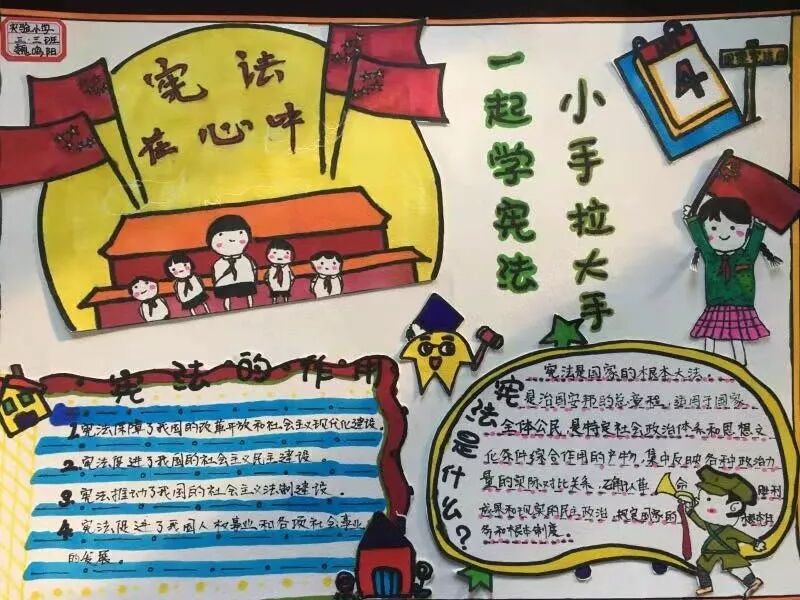 实验小学
三·三班
魏鸣阳
宪法
在心中
一起学宪法
小手拉大手
4
宪法的作用
1. 宪法保障了我国的改革开放和社会主义现代化建设。
2. 宪法促进了我国的社会主义民主建设。
3. 宪法推动了我国的社会主义法制建设。
4. 宪法促进了我国人权事业和各项社会事业
的发展。
宪法是什么?
宪法是国家的根本大法。
是治国安邦的总章程，适用于国家
全体公民，是特定社会政治体系和思想文
化条件综合作用的产物，集中反映各种政治力
量的实际对比关系，确认革命胜利
成果和现实的民主政治，规定国家的根本任
务和根本制度。